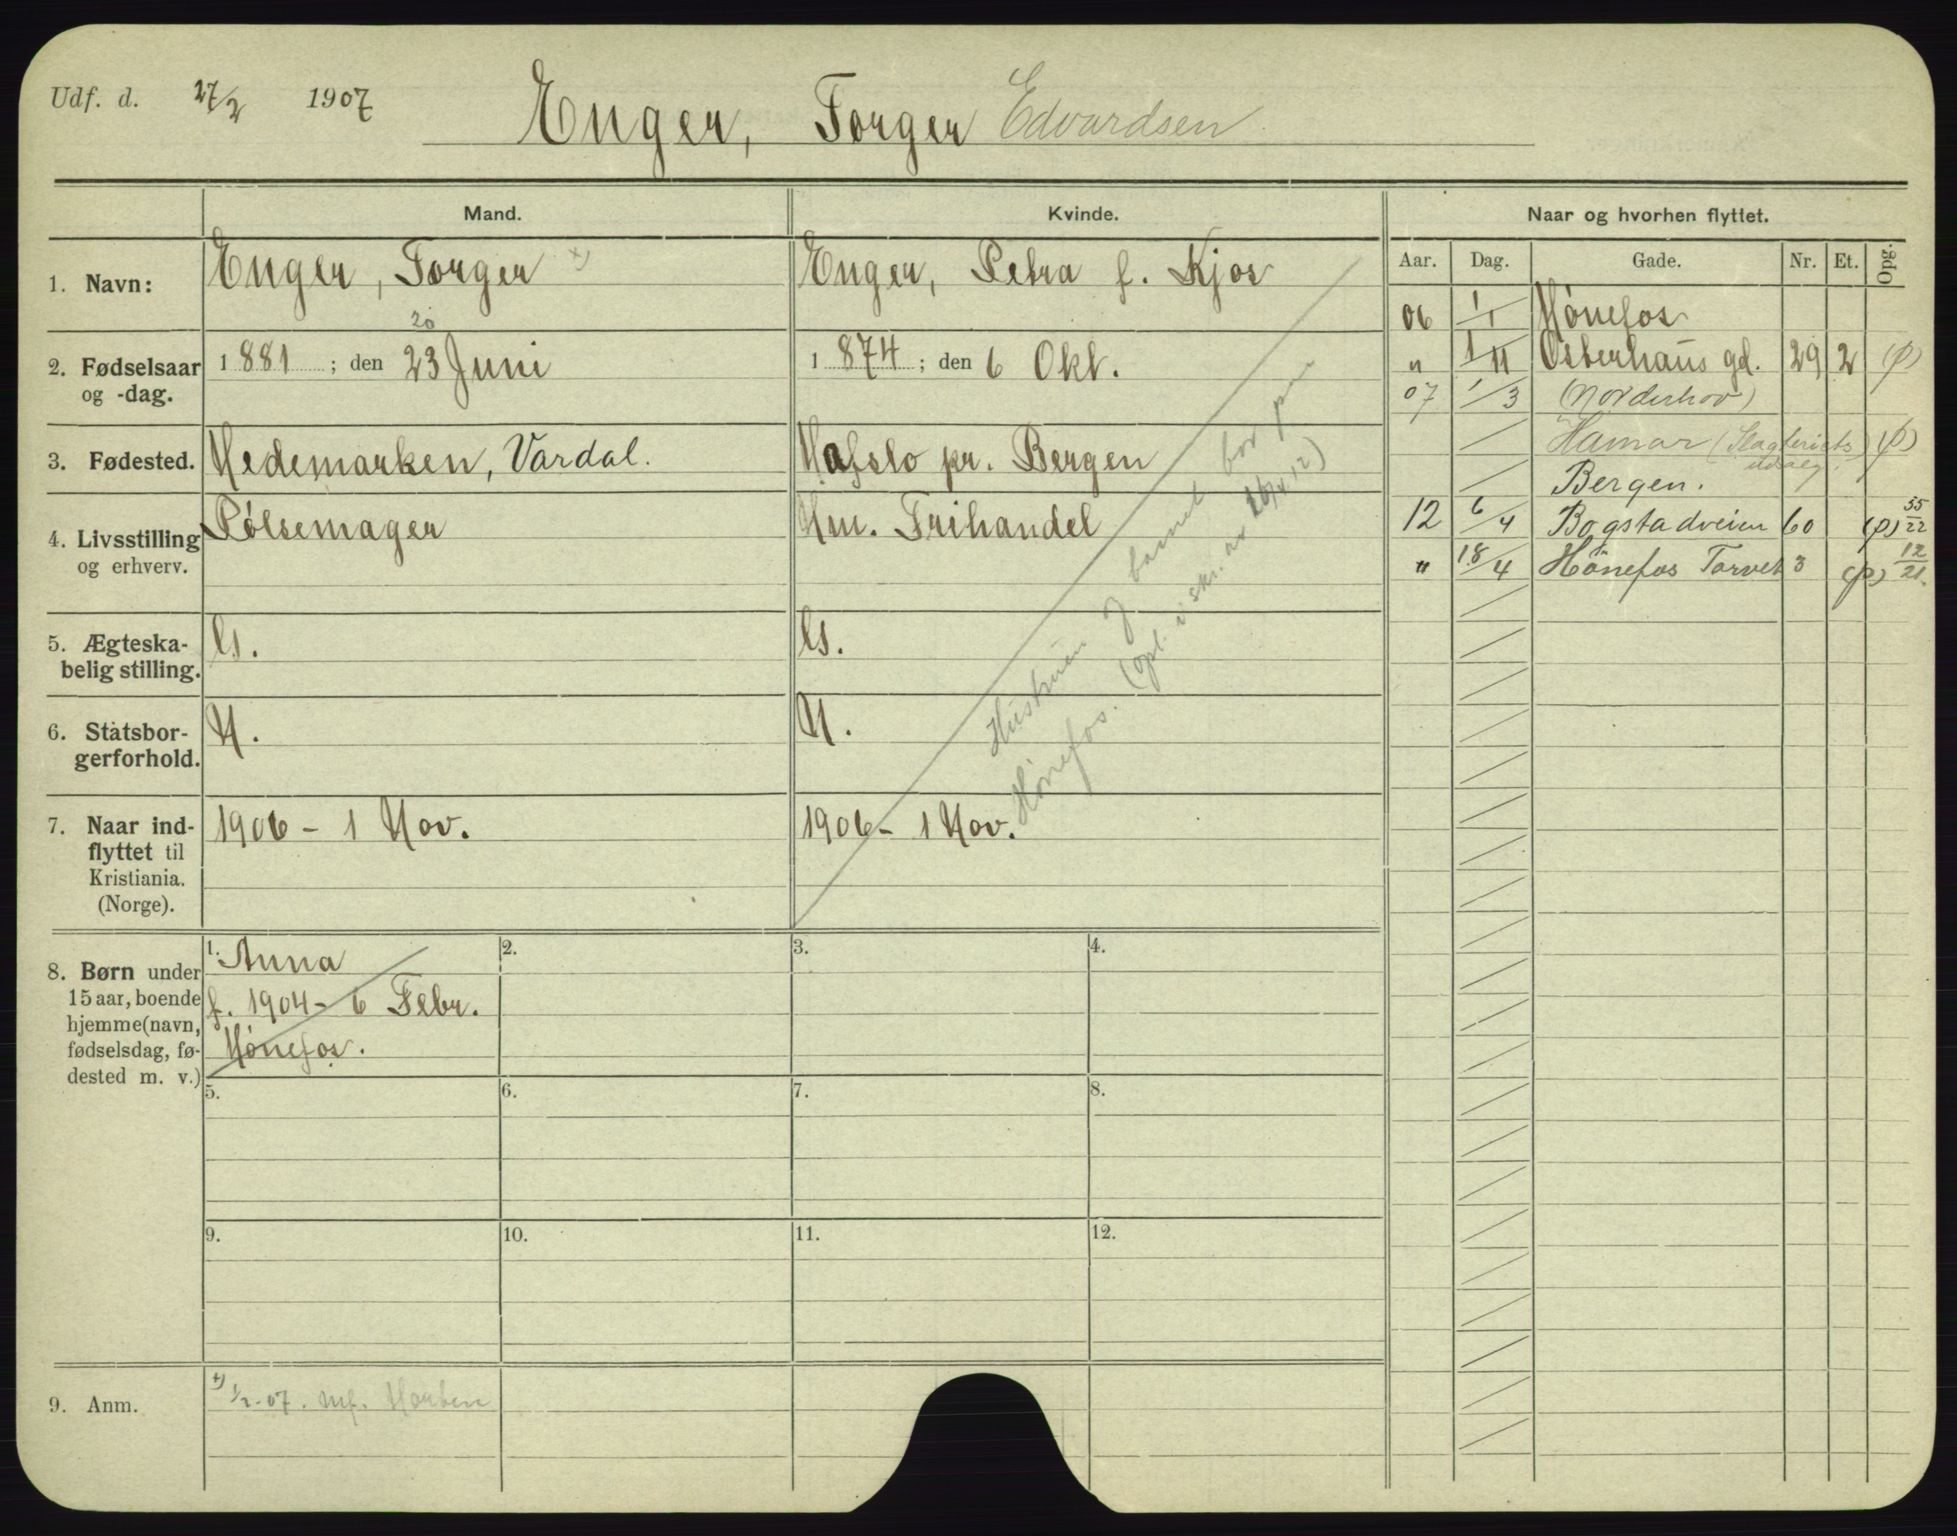 Udf. d. 27/2 1907
Enger, Torger Edvardsen
Mand. Kvinde. Naar og hvorhen flyttet.
1. Navn: Enger, Torger x) Enger, Petra f. Kjos
2. Fødselsaar og -dag. 1881; den 23 Juni 1874; den 6 Okt.
20
3. Fødested. Hedemarken, Vardal. Hafslo pr. Bergen
4. Livsstilling og erhverv. Pølsemager Hm. Frihandel
5. Ægteska-
belig stilling. G. G.
6. Statsbor-
gerforhold. N. N.
7. Naar ind-
flyttet til
Kristiania.
(Norge).
1906 - 1 Nov. 1906 - 1 Nov.
Hustruen og barnet bor paa
Hønefos. (opl. i skr. av 26/4 12)
8. Børn under
15 aar, boende
hjemme (navn,
fødselsdag, fø-
dested m. v.)
1. Anna
f. 1904 - 6 Febr.
Hønefos.
2.
3.
4.
5.
6.
7.
8.
9.
10.
11.
12.
9. Anm. x) 1/2-07.
Aar. Dag. Gade. Nr. Et. Opg.
06 1/1 Hønefos
" 1/11 Osterhaus gd. 29 2 (p)
07 1/3 (Norderhov)
Hamar (Slagteriets (p)
udsalg)
Bergen.
12 6/4 Bogstadveien 60 (p) 55/22
" 18/4 Hønefos Torvet 3 (p) 12/21.